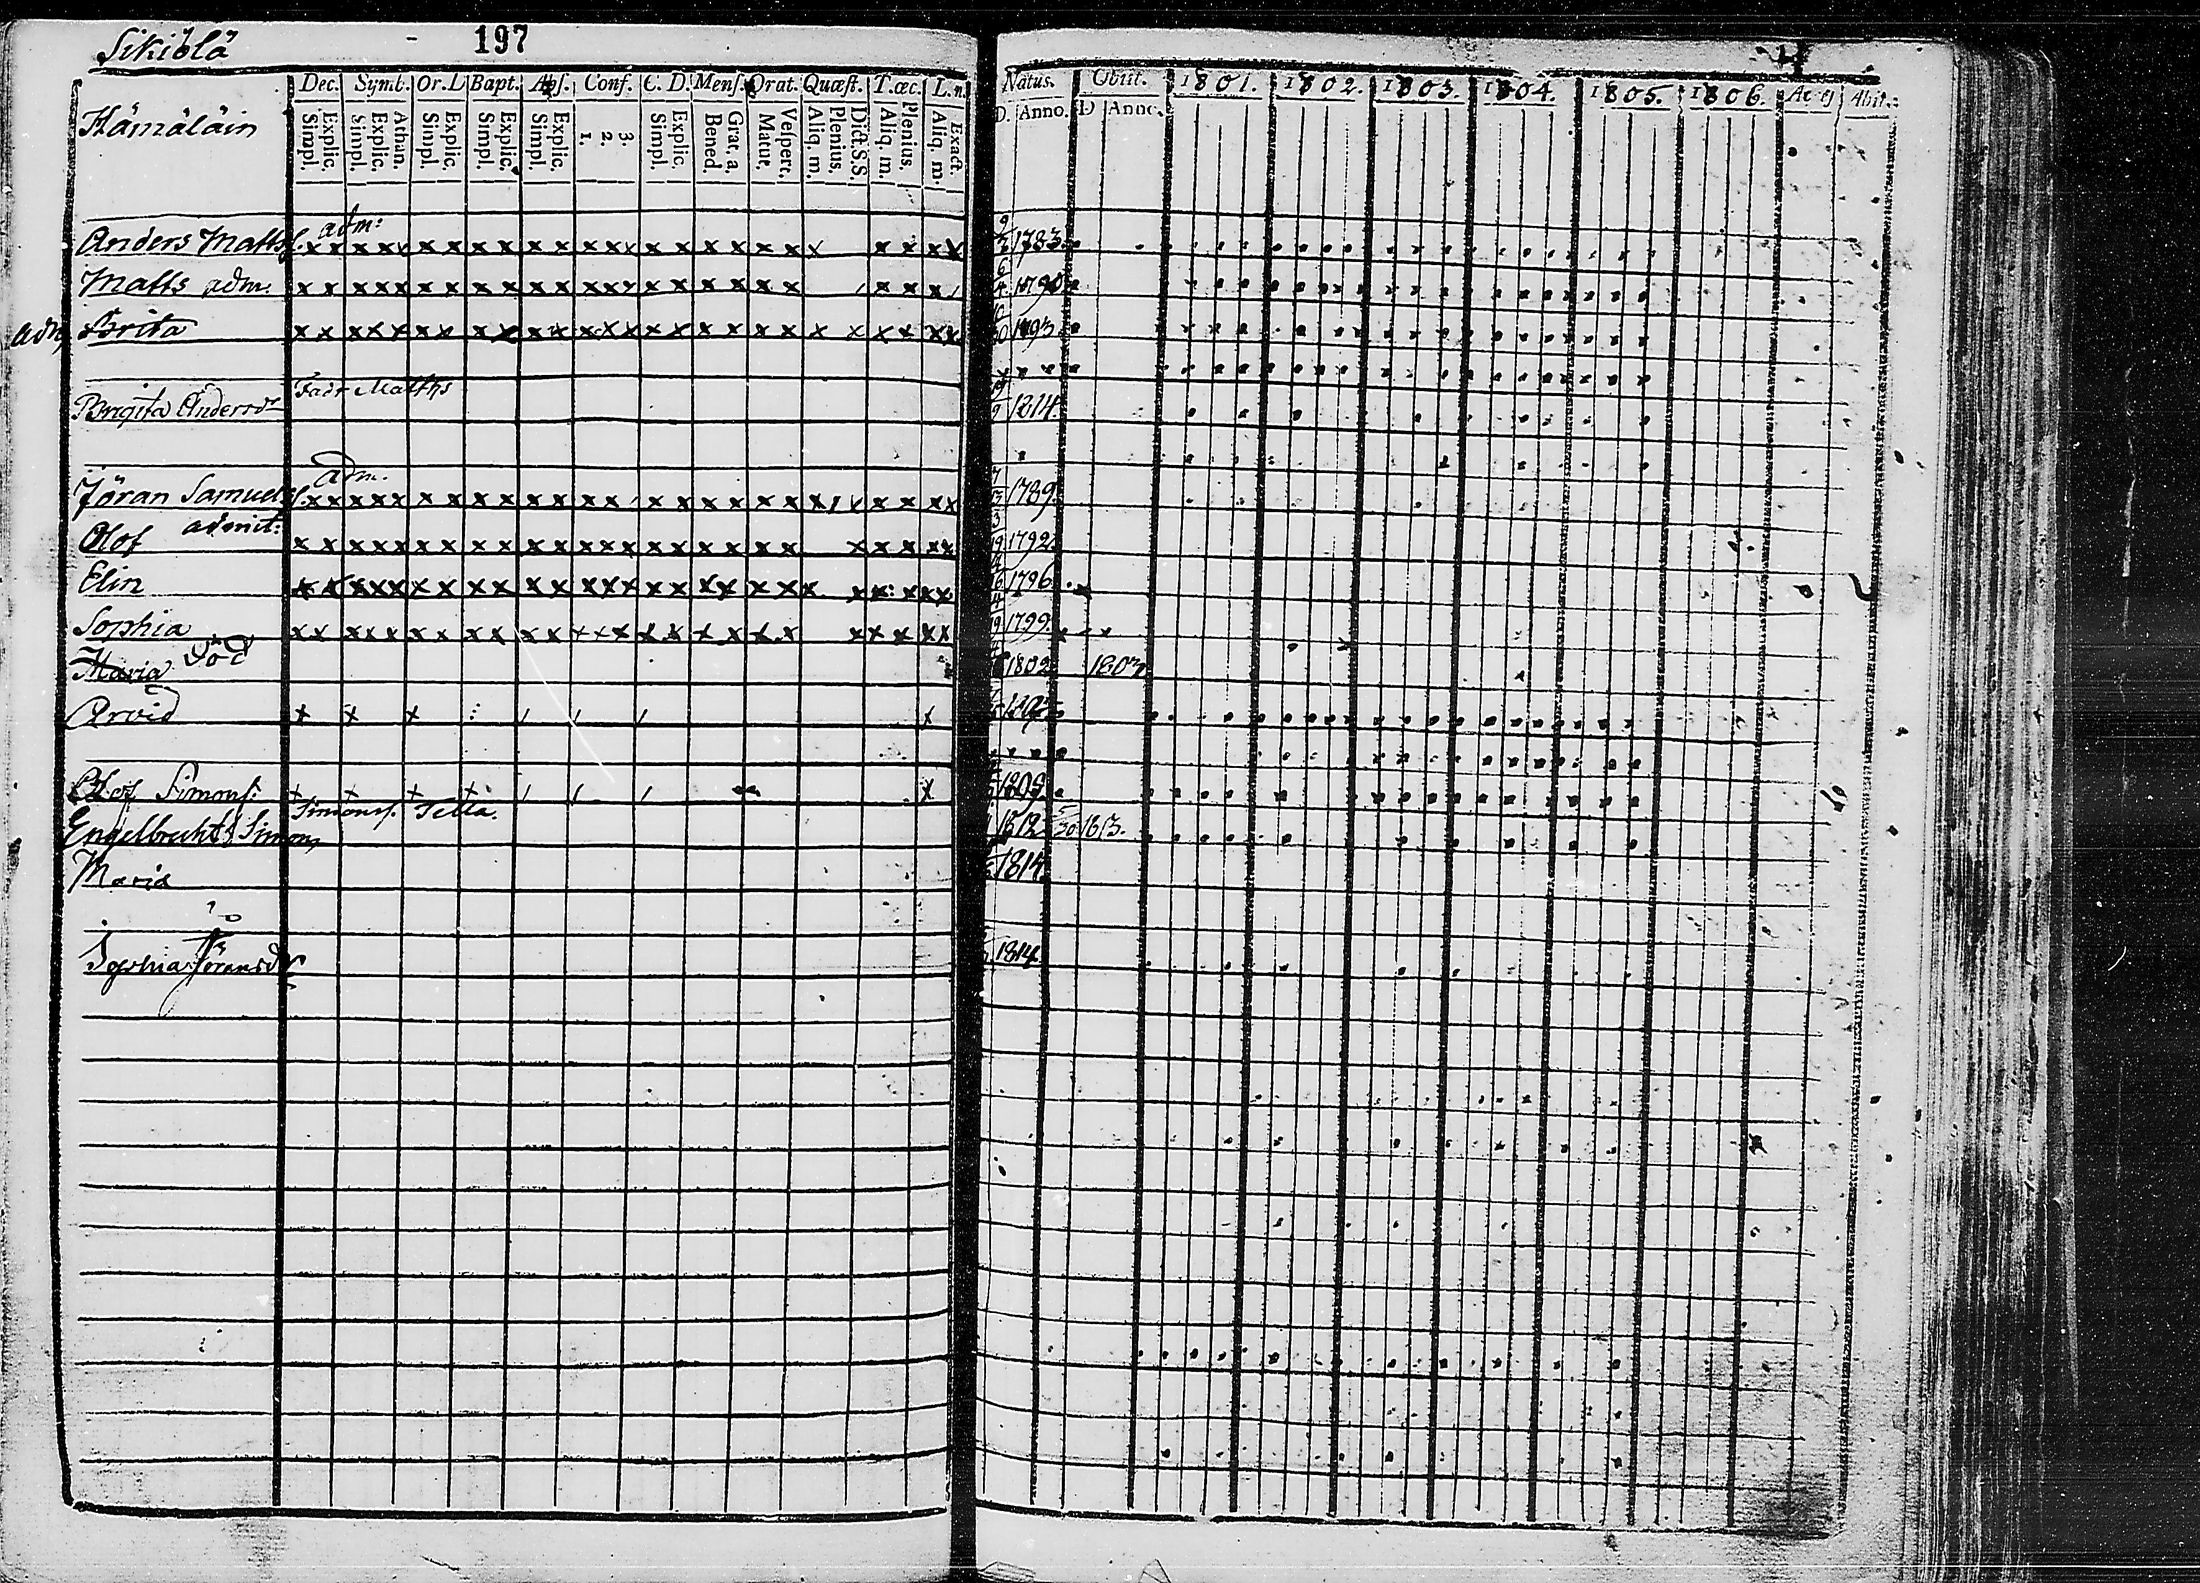 Sikiölä 197
Hämäläin
Dec. Symb. Or. D Bapt. Abſ. Conf. C. D. Menſ. Orat. Quæſt. T. œc. L. n.
Explic. Simpl. Athan. Explic. Simpl. Explic. Simpl. Explic. Simpl. Explic. Simpl. 3. 2. 1. Explic. Simpl. Grat. a. Bened. Veſpert. Matut. Dict. S.S. Plenius. Aliq. m. Plenius. Aliq. m. Exact. Aliq. m.
Natus. Obiit. 1801. 1802. 1803. 1804. 1805. 1806. Abiit.
D. Anno. D Anno.
adm:
Anders Mattss. 1783
Matts adm. 1790
adm. Brita 1793
Fadr Matths
Brigita Andersdr 1814.
adm.
Jöran Samuelss. 1789.
admit:
Olof 1792
Elin 1796
Sophia 1799
Maria död 1802 1803
Arvid
Olof Simonss: 1809
Simonss. Tella.
Engelbrecht Simons 1812 30 1813.
Maria 1814
Sophia Jöransdr 1814.